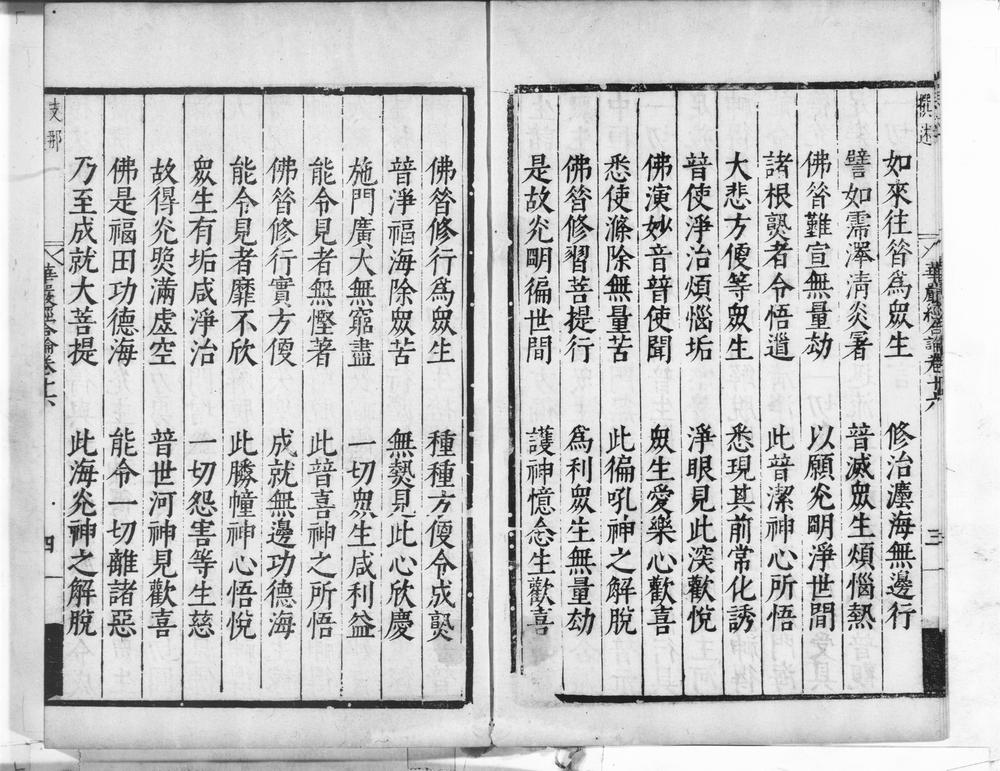 撰述
華嚴經合論卷十六
三
如來往昔爲眾生　修治瀍海無邊行
譬如霈澤清炎暑　普滅眾生煩惱熱
佛昔難宣無量劫　以願光明淨世間
諸根熟者令悟道　此普潔神心所悟
大悲方便等眾生　悉現其前常化誘
普使淨治煩惱垢　淨眼見此深歡悅
佛演妙音普使聞　眾生愛樂心歡喜
悉使滌除無量苦　此徧吼神之解脫
佛昔修習菩提行　爲利眾生無量劫
是故光明徧世間　護神憶念生歡喜
佛昔修行爲眾生　種種方便令成熟
普淨福海除眾苦　無熱見此心欣慶
施門廣大無窮盡　一切眾生咸利益
能令見者無慳著　此普喜神之所悟
佛昔修行實方便　成就無邊功德海
能令見者靡不欣　此勝幢神心悟悅
眾生有垢咸淨治　一切怨害等生慈
故得光熒滿虛空　普世河神見歡喜
佛是福田功德海　能令一切離諸惡
乃至成就大菩提　此海光神之解脫
支那
華嚴經合論卷十六
四